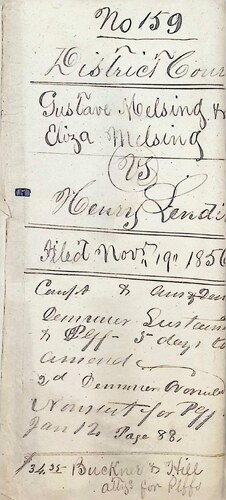 No 159
District Cour
Gustave Melsing &
Eliza Melsing
VS
Henry Lendi
Filed Novr 19th 1856
Compt & Ans & Dem
Demurrer Sustain
& Plff - 5 days to
amend
2d Demurrer Overrul
Nonsuit for Plff
Jan 12 Page 88.
$34.35 Buckner & Hill
attys for Plffs